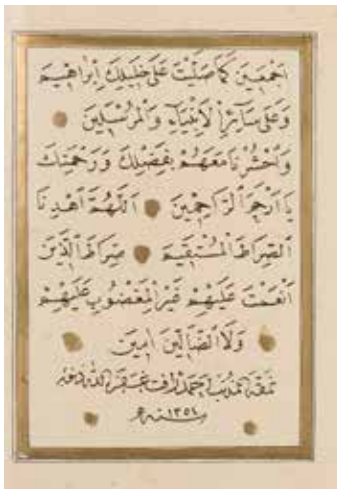 اَجْمَعِينَ كَمَا صَلَّيْتَ عَلٰى خَلِيلِكَ اِبْرَاهِيمَ
وَعَلٰى سَآئِرِ الْاَنْبِيَآءِ وَالْمُرْسَلِينَ
وَاحْشُرْنَا مَعَهُمْ بِفَضْلِكَ وَرَحْمَتِكَ
يَا اَرْحَمَ الرَّاحِمِينَ اَللّٰهُمَّ اهْدِنَا
الصِّرَاطَ الْمُسْتَقِيمَ صِرَاطَ الَّذِينَ
اَنْعَمْتَ عَلَيْهِمْ غَيْرِ الْمَغْضُوبِ عَلَيْهِمْ
وَلَا الضَّآلِّينَ اٰمِينَ
نمقه المذنب احمد غفر الله ذنوبه
سنه ١٣٥١